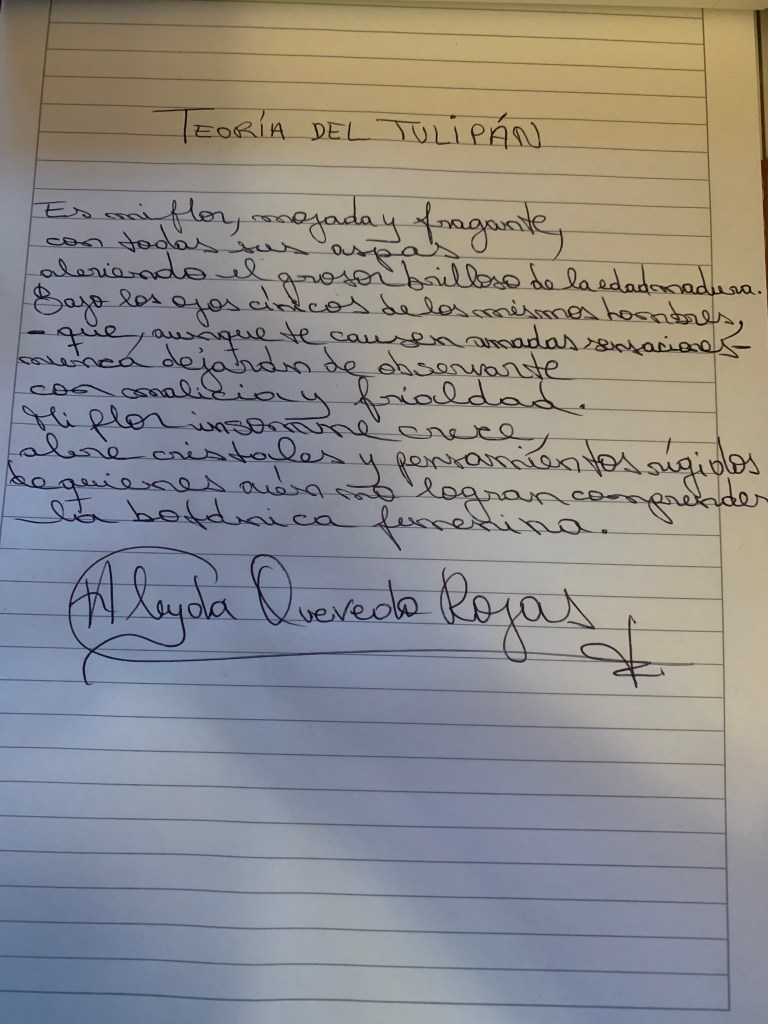 TEORÍA DEL TULIPÁN
Es mi flor, mojada y fragante,
con todas sus aspas
abriendo el grosor brilloso de la edad madura.
Bajo los ojos cínicos de los mismos hombres,
- que, aunque te causen amadas sensaciones -
nunca dejarán de observarte
con malicia y frialdad.
Mi flor insomne crece,
abre cristales y pensamientos rígidos
de quienes aún no logran comprender
la botánica femenina.
Aleyda Quevedo Rojas